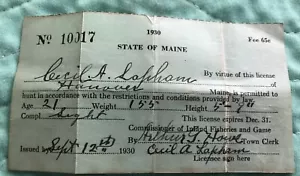 1930
No 10017 Fee 65c
STATE OF MAINE
Cecil A. Lapham By virtue of this license
of Hanover Maine, is permitted to
hunt in accordance with the restrictions and conditions provided by law.
Age 21 Weight 155 Height 5-7
Compl Light This license expires Dec. 31.
Commissioner of Inland Fisheries and Game
Town Clerk
Issued Sept 12th 1930 Cecil A. Lapham
Licensee sign here